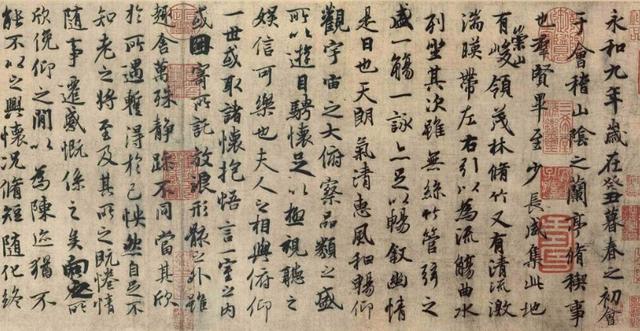 永和九年歲在癸丑暮春之初會
于會稽山陰之蘭亭脩稧事
也群賢畢至少長咸集此地
有崇山峻領茂林脩竹又有清流激
湍暎帶左右引以為流觴曲水
列坐其次雖無絲竹管弦之
盛一觴一詠亦足以暢敘幽情
是日也天朗氣清惠風和暢仰
觀宇宙之大俯察品類之盛
所以遊目騁懷足以極視聽之
娛信可樂也夫人之相與俯仰
一世或取諸懷抱悟言一室之內
或因寄所託放浪形骸之外雖
趣舍萬殊靜躁不同當其欣
於所遇暫得於己怏然自足不
知老之將至及其所之既惓情
隨事遷感慨係之矣向之所
欣俛仰之閒以為陳迹猶不
能不以之興懷況脩短隨化終